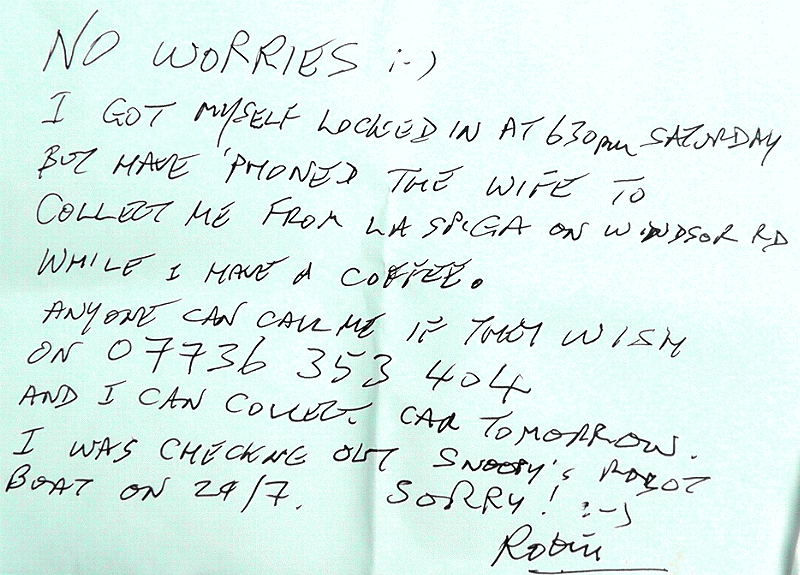 NO WORRIES ;-)
I GOT MYSELF LOCKED IN AT 630pm SATURDAY
BUT HAVE 'PHONED THE WIFE TO
COLLECT ME FROM LA SPIGA ON WINDSOR RD
WHILE I HAVE A COFFEE.
ANYONE CAN CALL ME IF THEY WISH
ON 07736 353 404
AND I CAN COLLECT CAR TOMORROW.
I WAS CHECKNG OUT SNOOPY'S ROBOT
BOAT ON 24/7. SORRY! :-)
Robin